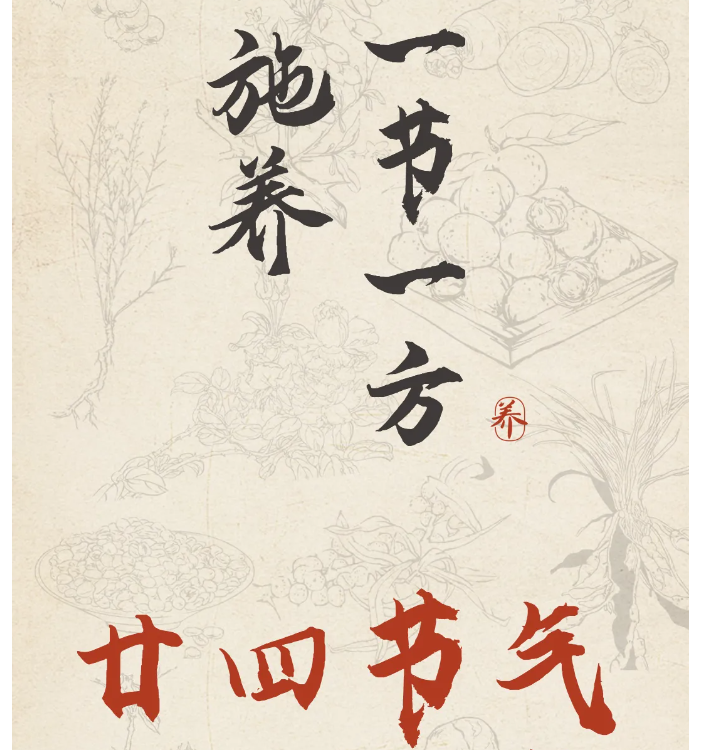 一节一方
施养
养
廿四节气